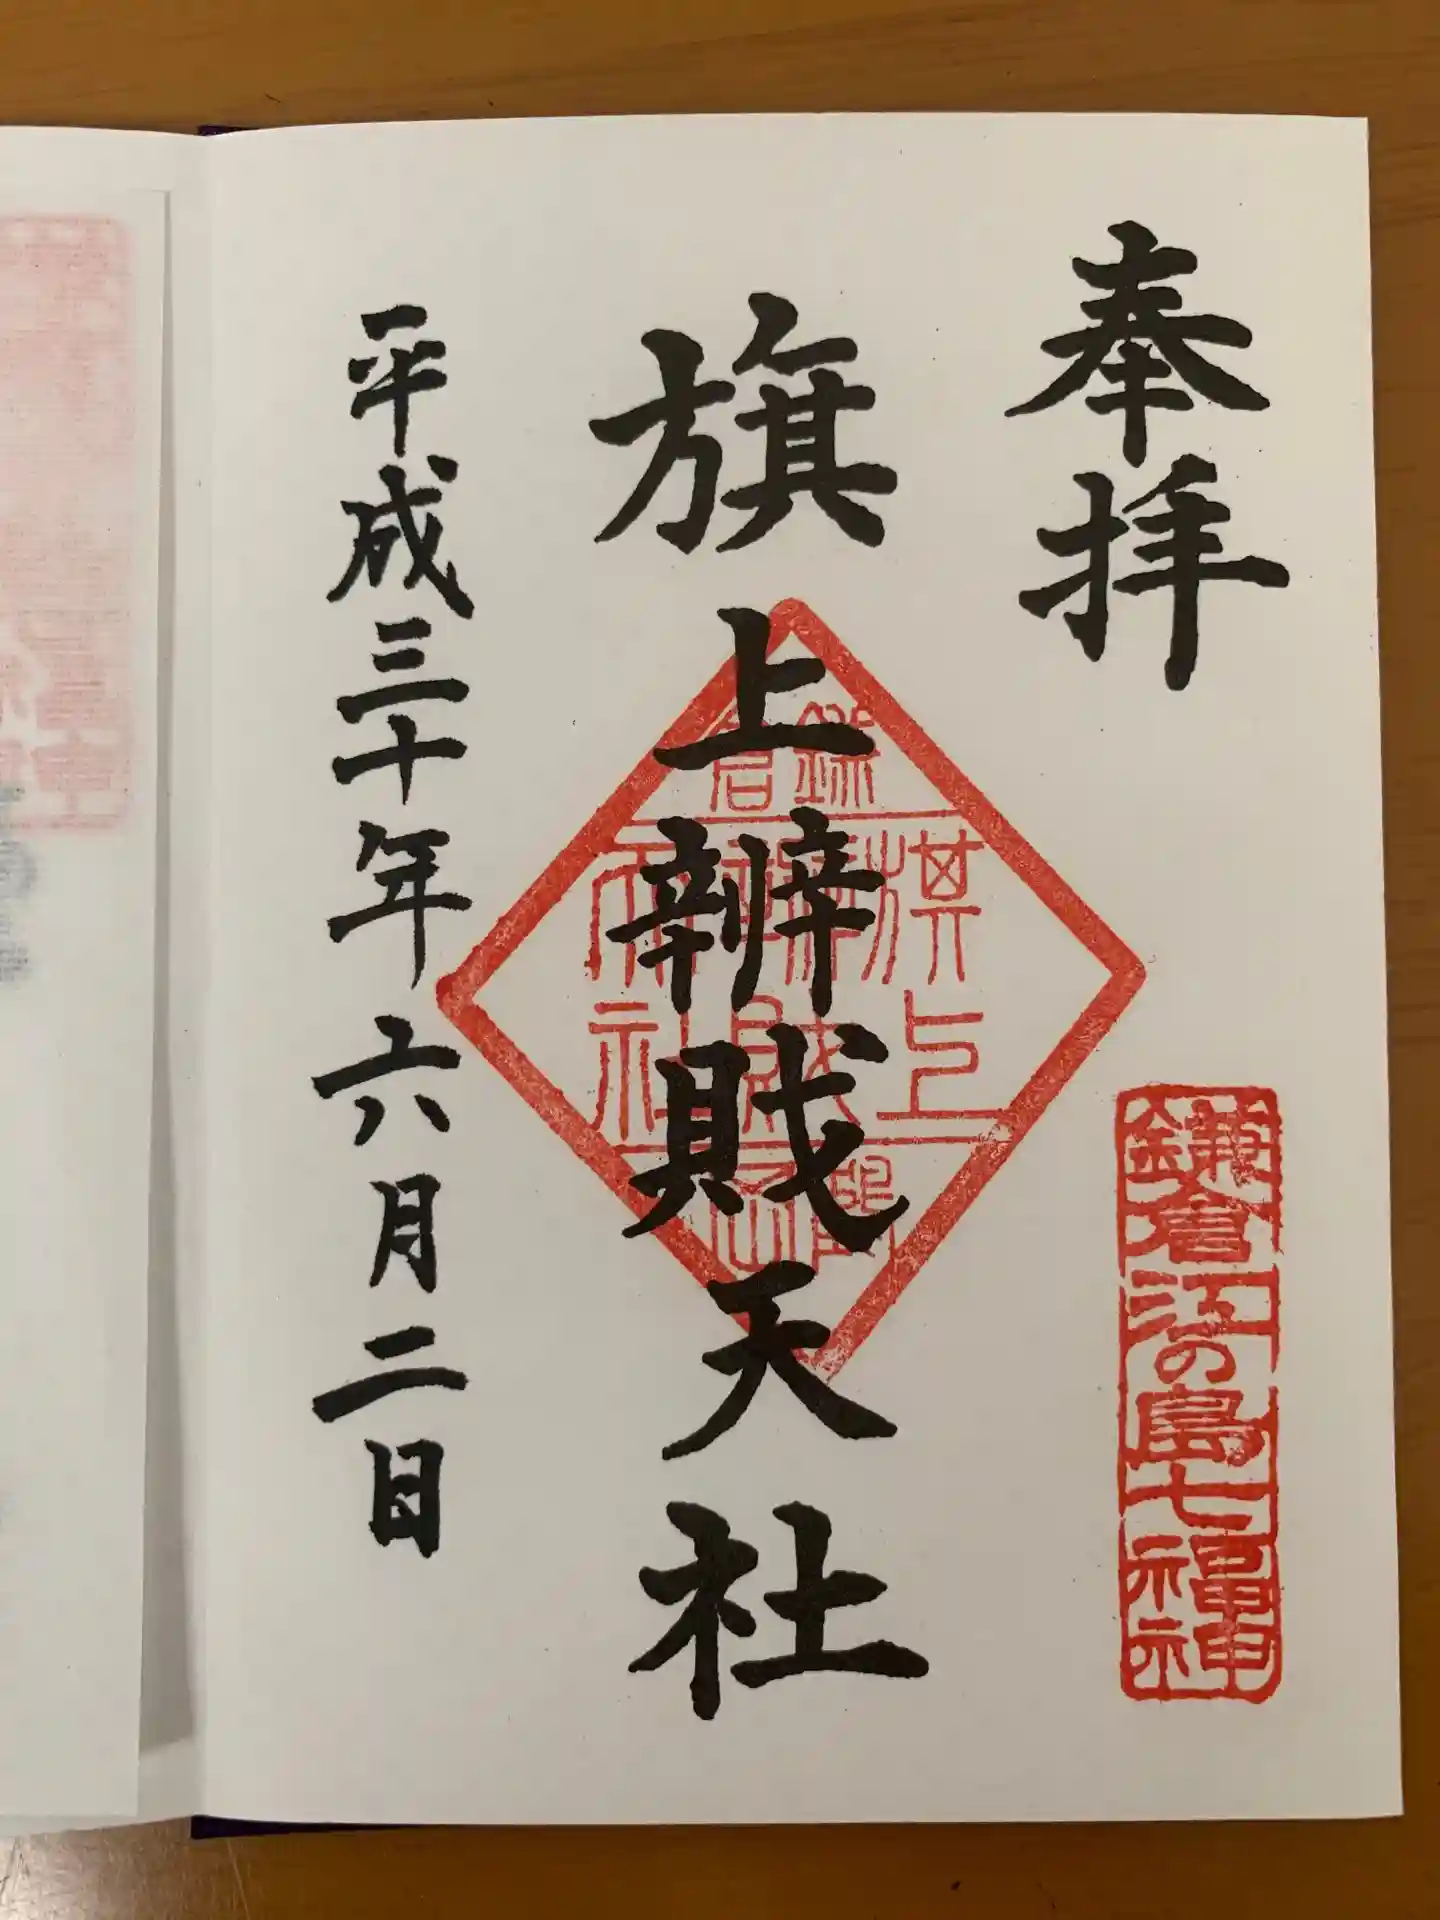 奉拝
鎌倉江の島七福神
旗上辨財天社
旗上
辨財
天社
平成三十年六月二日